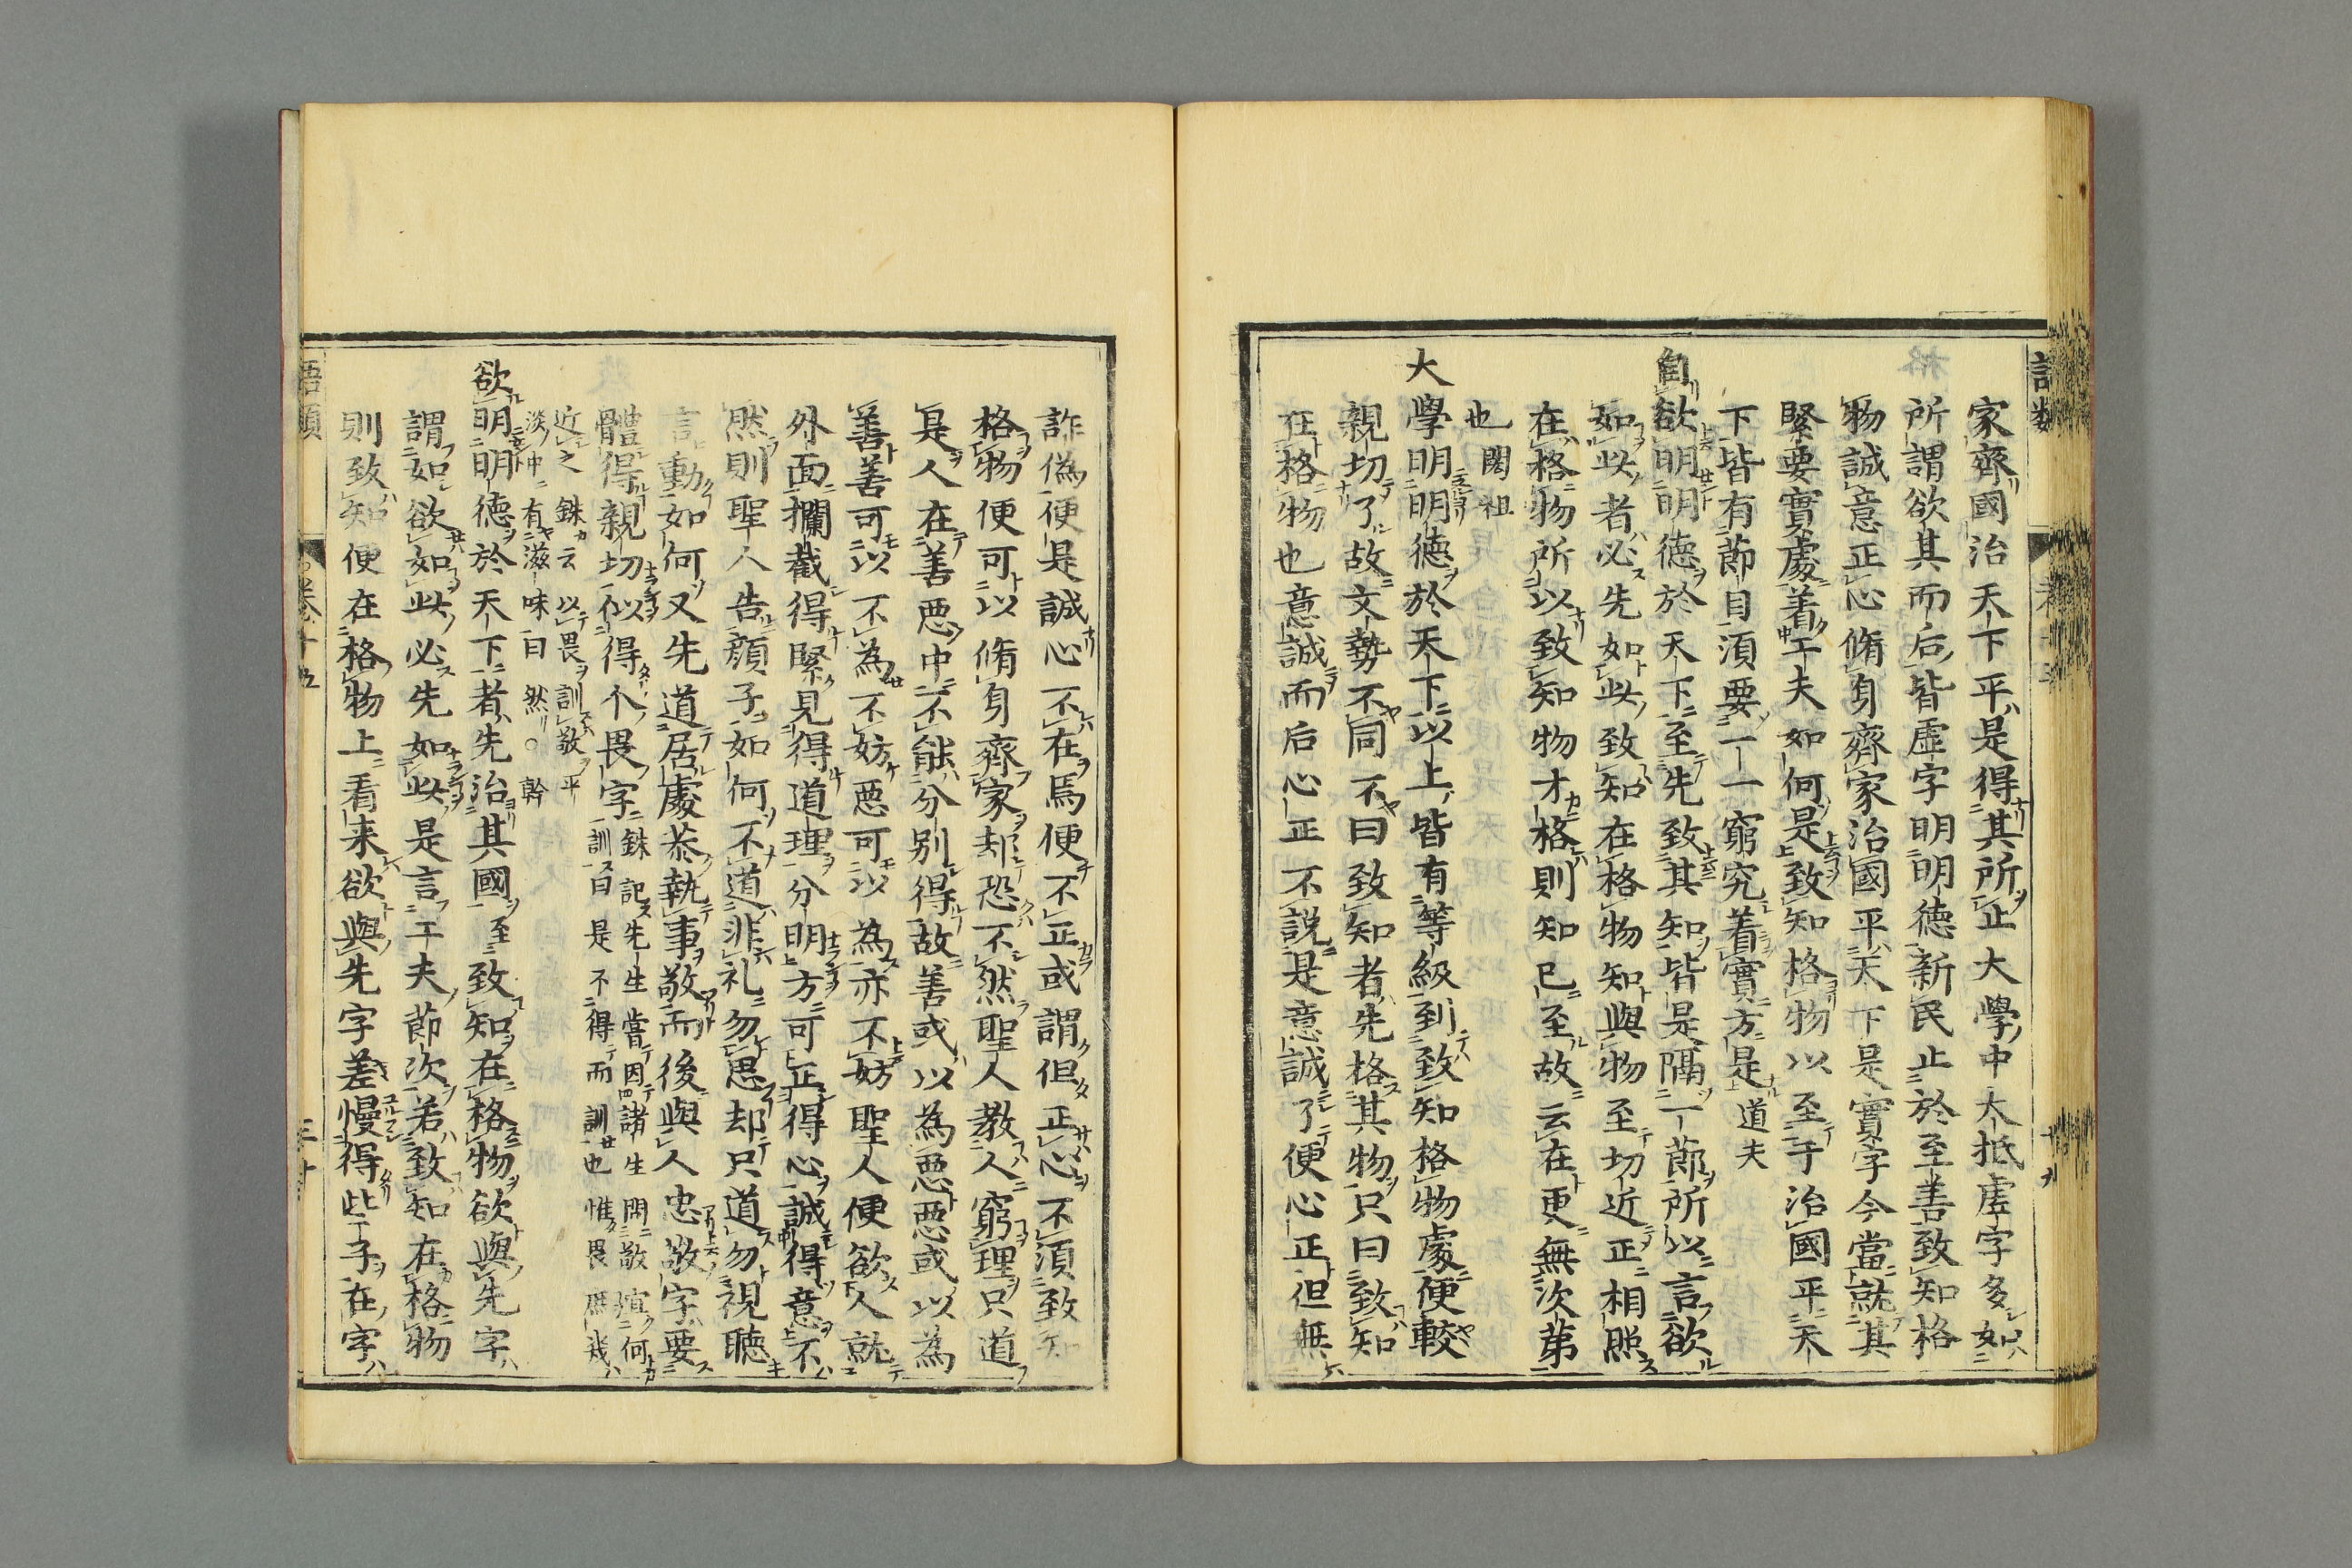 家齊國治天下平是得其所止大學中大抵虛字多如
所謂欲其而后皆虛字明明德新民止於至善致知格
物誠意正心脩身齊家治國平天下是實字今當就其
緊要實處着工夫如何是致知格物以至于治國平天
下皆有節目須要一一窮究着實方是道夫
自欲明明德於天下至先致其知皆是隔一節所以言欲
如此者必先如此致知在格物知與物至切近正相照
在格物所以致知物才格則知已至故云在更無次第
也閎祖
大學明明德於天下以上皆有等級到致知格物處便較
親切了故文勢不同不曰致知者先格其物只曰致知
在格物也意誠而后心正不說是意誠了便心正但無
詐偽便是誠心不在焉便不正或謂但正心不須致知
格物便可以脩身齊家却恐不然聖人教人窮理只道
是人在善惡中不能分別得故善或以為惡惡或以為
善善可以不為不妨惡可以為亦不妨聖人便欲人就
外面攔截得緊見得道理分明方可正得心誠得意不
然則聖人告顏子如何不道非礼勿思却只道勿視聽
言動如何又先道居處恭執事敬而後與人忠敬字要
體得親切似得个畏字銖記先生嘗因諸生問敬宜何
訓曰是不得而訓也惟畏庶幾
近之銖云以畏訓敬平
淡中有滋味曰然○榦
欲明明德於天下者先治其國至致知在格物欲與先字
謂如欲如此必先如此是言工夫節次若致知在格物
則致知便在格物上看来欲與先字差慢得些子在字
語類
卷十五
三十